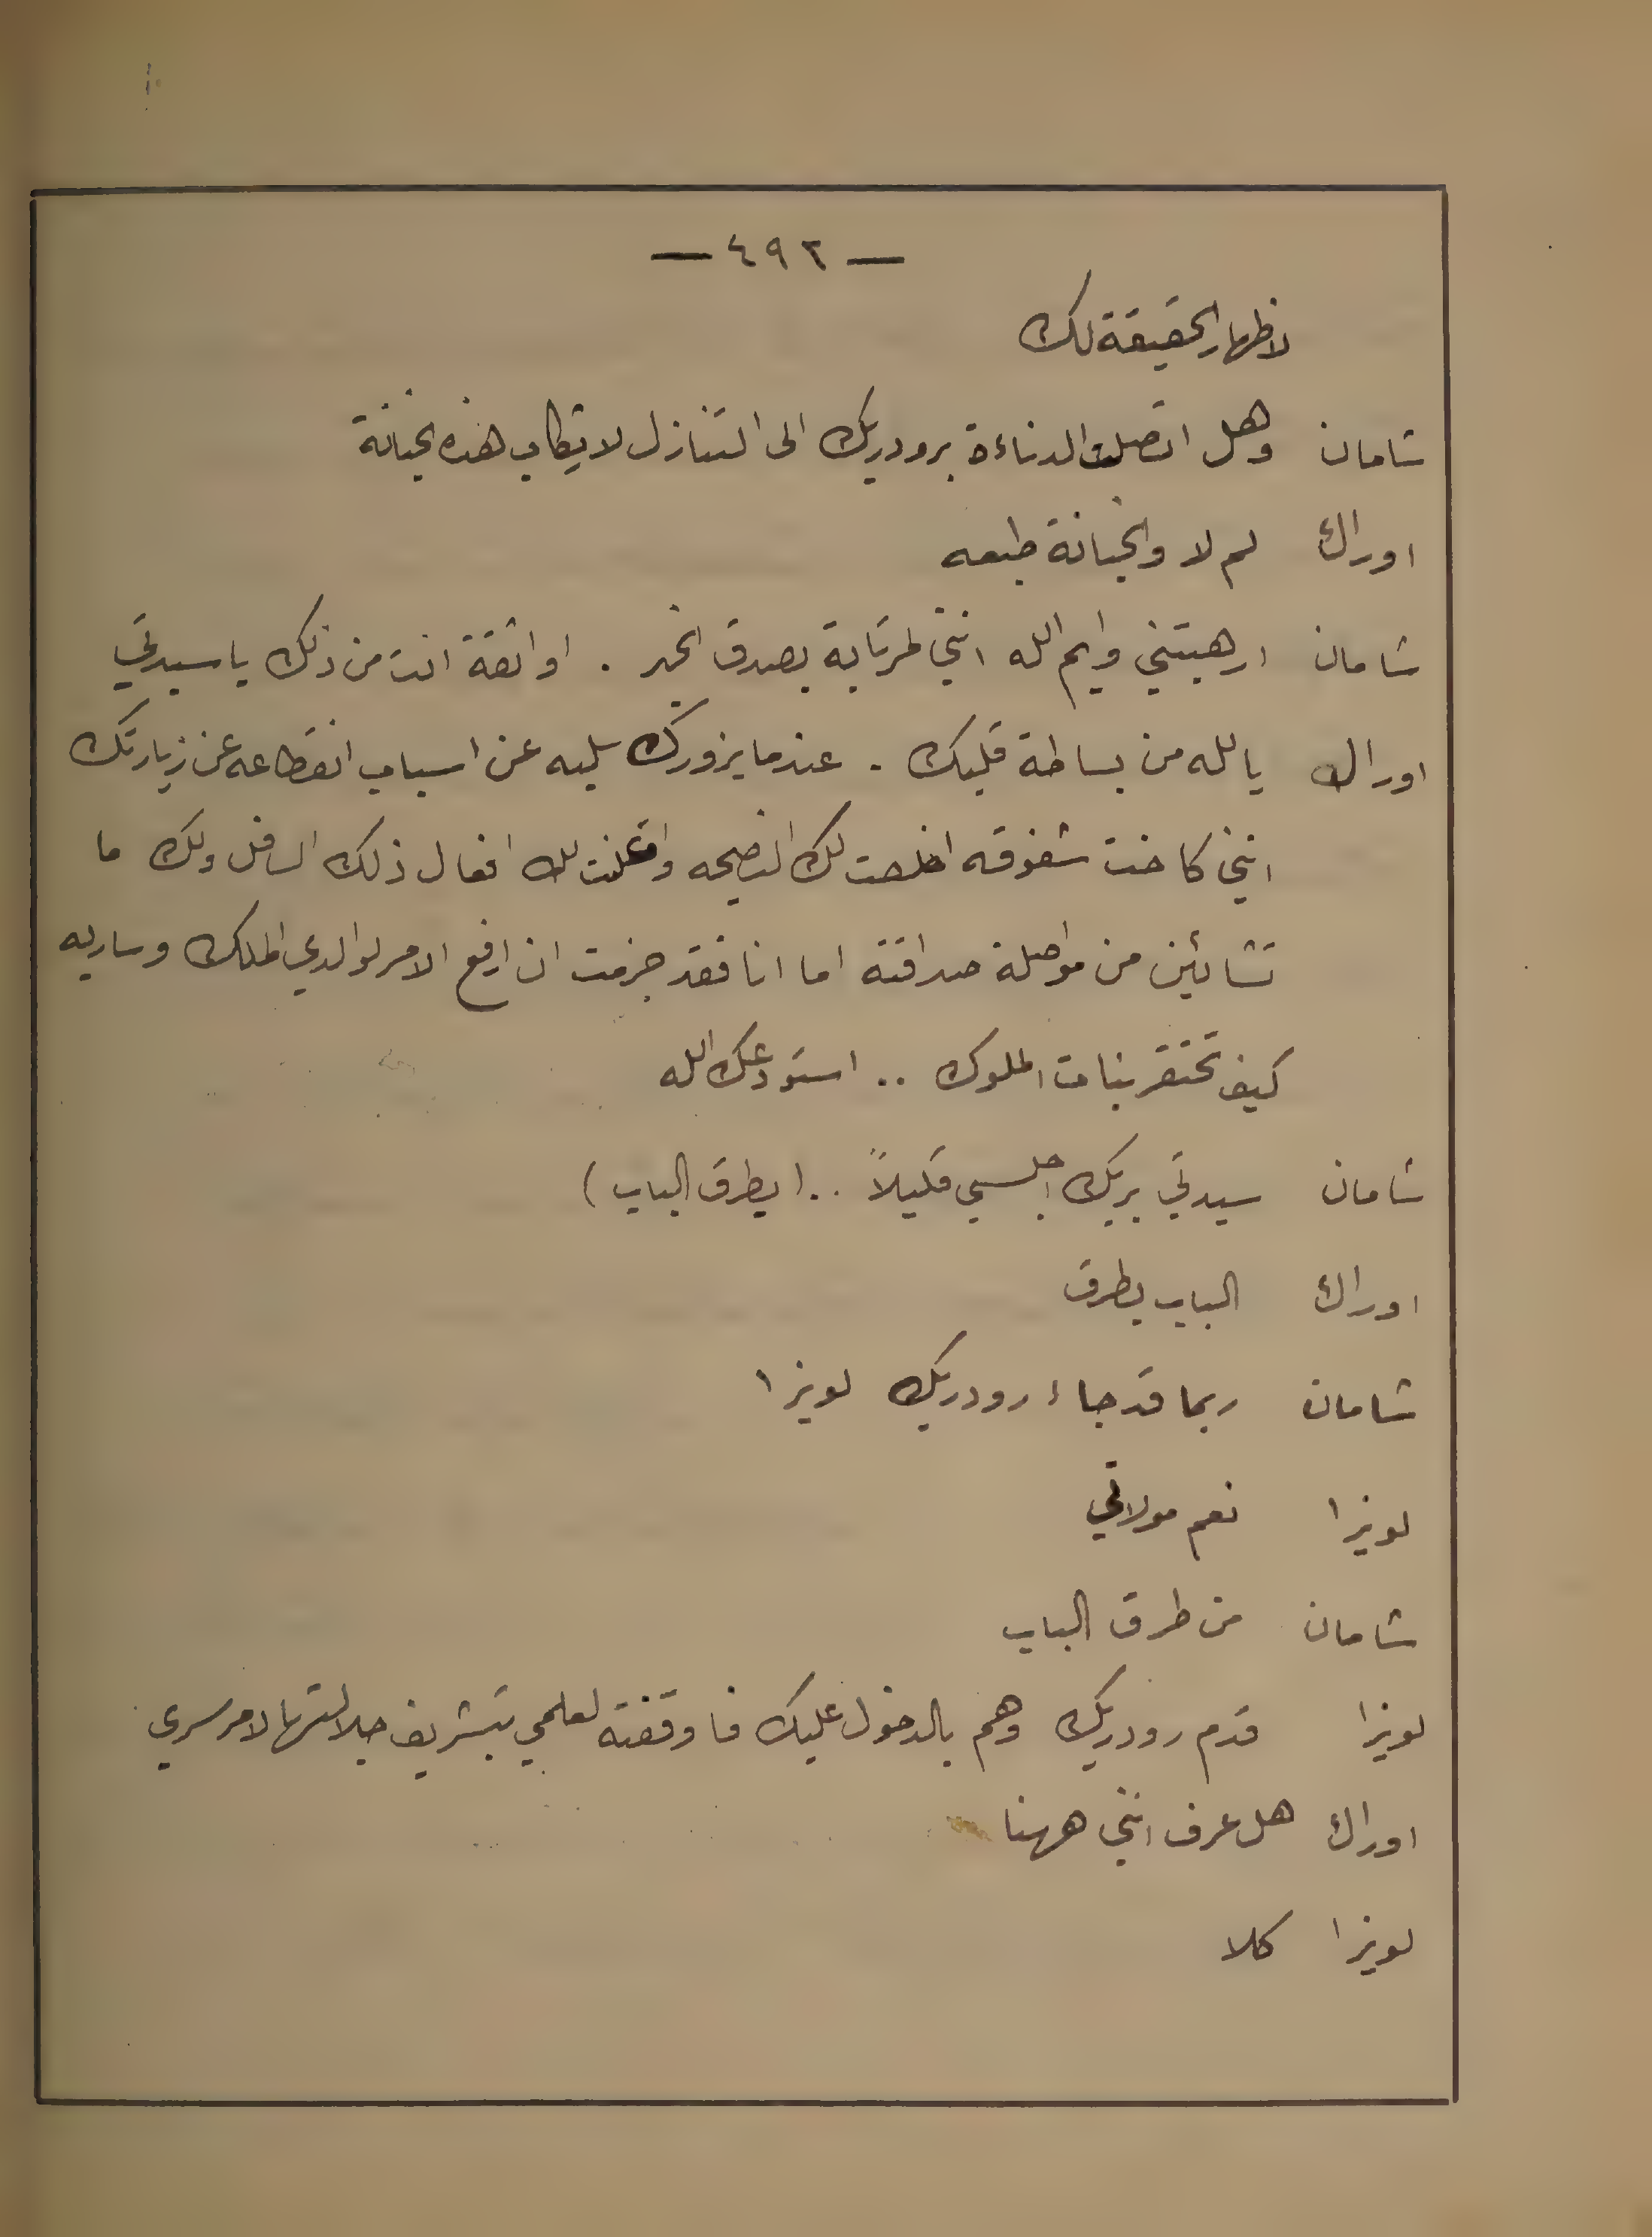 — ٤٩٢ —
لاظهار الحقيقة لك
شامان وهل اتصلت الدناءة برودريك الى التنازل لارتكاب هذه الخيانة
اوراك لم لا والخيانة طبعه
شامان ارهبتني وايم الله انني لمرتابة بصدق الخبر . اواثقة انت من ذلك يا سيدتي
اوراك يالله من بساطة قلبك . عندما يزورك سليه عن اسباب انقطاعه عن زيارتك
انني كاخت شفوقه اخلصت لك النصيحه واعلنت لك افعال ذلك السافل ولك ما
تشائين من مواصلة صداقته اما انا فقد جزمت ان ارفع الامر لوالدي الملك وساريه
كيف تحتقر بنات الملوك .. استودعك الله
شامان سيدتي بربك اجلسي قليلاً .. (يطرق الباب)
اوراك الباب يطرق
شامان ربما قد جاء رودريك لويزا
لويزا نعم مولاتي
شامان من طرق الباب
لويزا قدم رودريك وهم بالدخول عليك فاوقفته لعلمي بتشريف جلالتها لامر سري
اوراك هل عرف انني ههنا
لويزا كلا